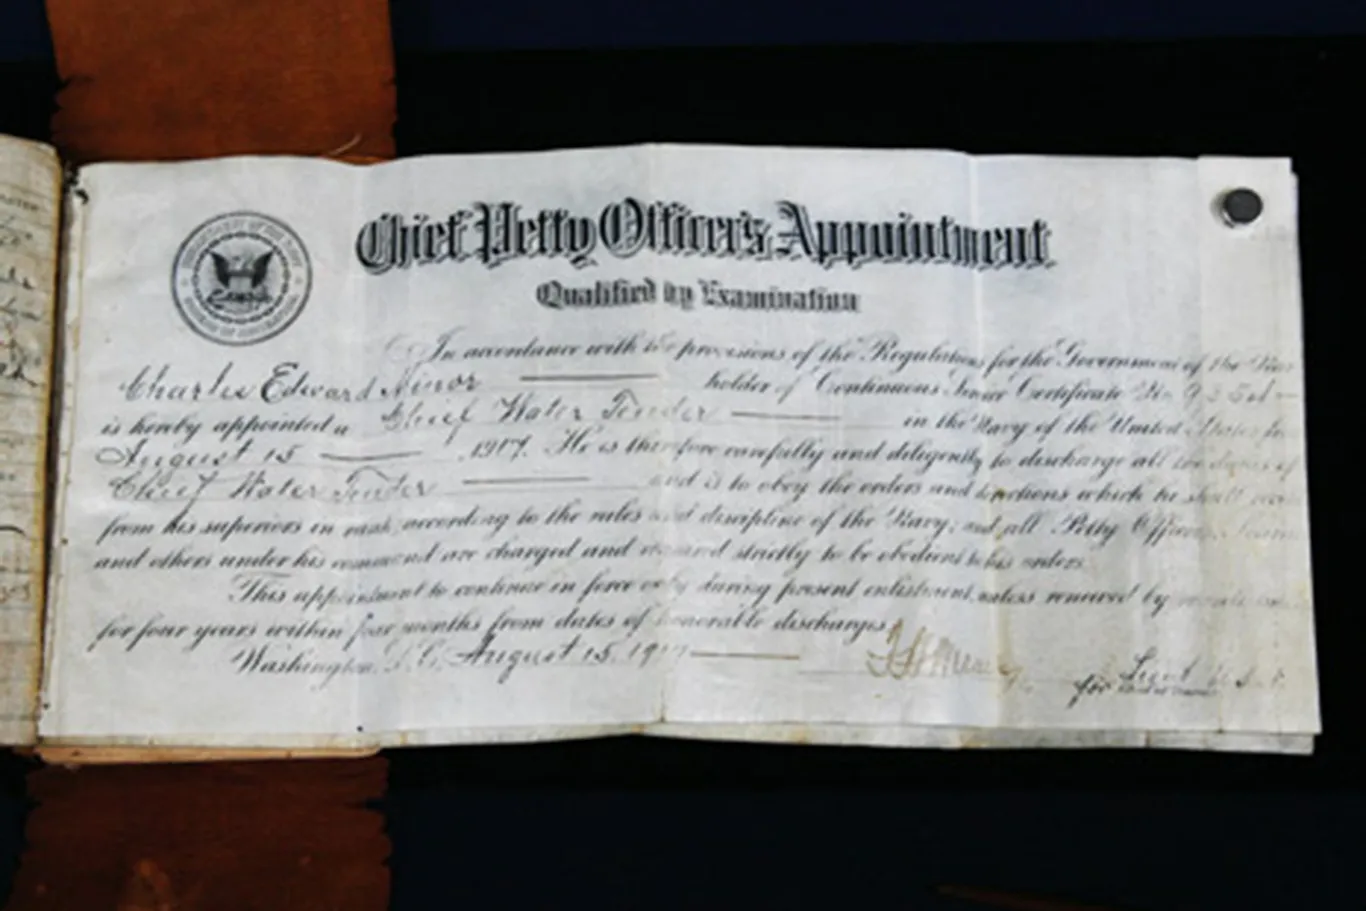 Chief Petty Officer's Appointment
Qualified by Examination
In accordance with the provisions of the Regulations for the Government of the
Charles Edward Minor holder of Continuous Service Certificate No.
is hereby appointed a Chief Water Tender in the Navy of the United States
August 15, 1917. He is therefore carefully and diligently to discharge all the duties of
Chief Water Tender and is to obey the orders and directions which he shall
from his superiors in rank according to the rules and discipline of the Navy; and all Petty Officers,
and others under his command are charged and required strictly to be obedient to his orders.
This appointment to continue in force only during present enlistment, unless renewed by
for four years within four months from dates of honorable discharges.
Washington, D.C., August 15, 1917
for